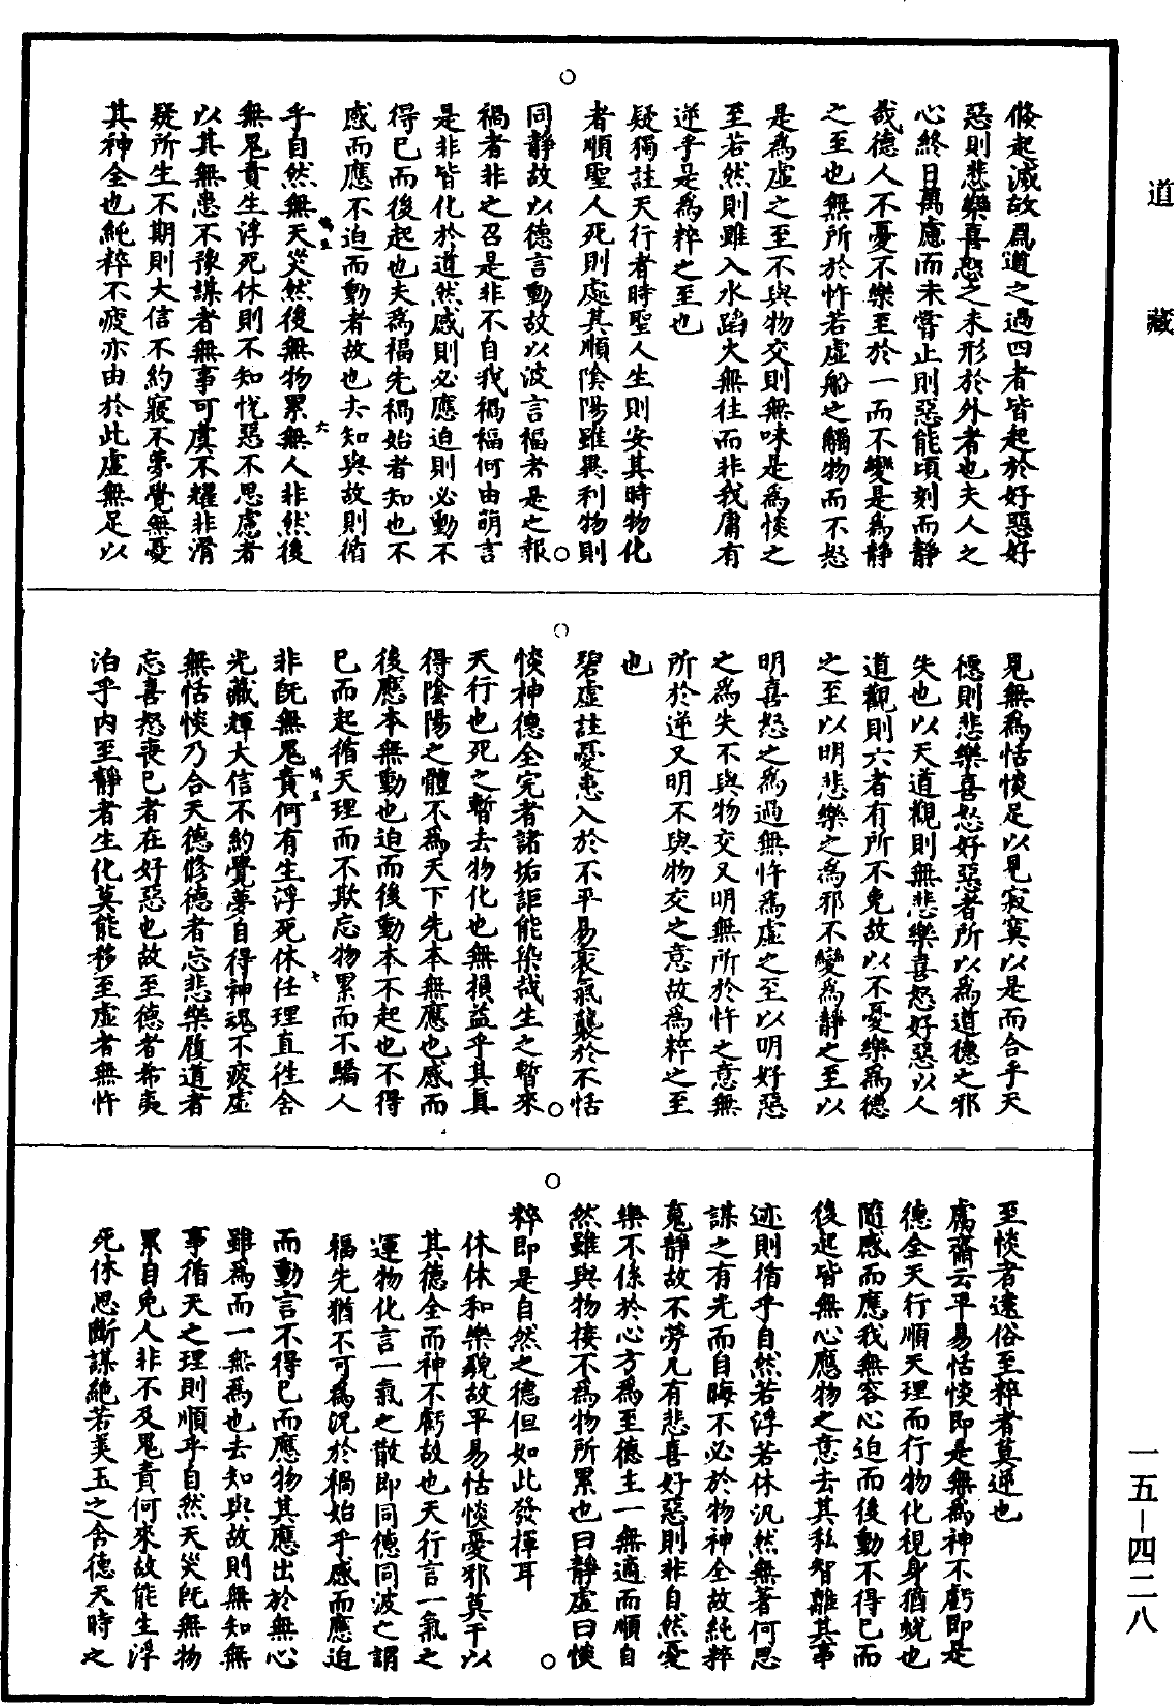 道藏
倏起滅故爲道之過四者皆起於好惡好
惡則悲樂喜怒之未形於外者也夫人之
心終日萬應而未嘗止則惡能頃刻而靜
哉德人不憂不樂至於一而不變是爲靜
之至也無所於忤若虛船之觸物而不怒
是爲虛之至不與物交則無味是爲惔之
至若然則雖入水蹈火無往而非我庸有
逆乎是爲粹之至也
疑獨註天行者時聖人生則安其時物化
者順聖人死則處其順陰陽雖異利物則
同靜故以德言動故以波言福者是之報
禍者非之召是非不自我禍福何由萌言
是非皆化於道然感則必應迫則必動不
得已而後起也夫爲福先禍始者知也不
感而應不迫而動者故也去知與故則循
乎自然無天災然後無物累無人非然後
無鬼責生浮死休則不知悅惡不思慮者
以其無患不豫謀者無事可虞不耀非滑
疑所生不期則大信不約寢不夢覺無憂
其神全也純粹不疲亦由於此虛無足以
六
見無爲恬惔足以見寂寞以是而合乎天
德則悲樂喜怒好惡者所以爲道德之邪
失也以天道觀則無悲樂喜怒好惡以人
道觀則六者有所不免故以不憂樂爲德
之至以明悲樂之爲邪不變爲靜之至以
明喜怒之爲過無忤爲虛之至以明好惡
之爲失不與物交又明無所於忤之意無
所於逆又明不與物交之意故爲粹之至
也
碧虛註憂患入於不平易衺氣襲於不恬
惔神德全完者諸垢詎能染哉生之暫來
天行也死之暫去物化也無損益乎其眞
得陰陽之體不爲天下先本無應也感而
後應本無動也迫而後動本不起也不得
已而起循天理而不欺忘物累而不驕人
非旣無鬼責何有生浮死休任理直徃舍
光藏輝大信不約覺夢自得神魂不疲虛
無恬惔乃合天德修德者忘悲樂履道者
忘喜怒喪己者在好惡也故至德者希夷
泊乎內至靜者生化莫能移至虛者無忤
七
至惔者遠俗至粹者莫逆也
鬳齋云平易恬惔即是無爲神不虧即是
德全天行順天理而行物化視身猶蛻也
隨感而應我無容心迫而後動不得已而
後起皆無心應物之意去其私智離其事
迹則循乎自然若浮若休汎然無著何思
謀之有光而自晦不必於物神全故純粹
䰟靜故不勞凡有悲喜好惡則非自然憂
樂不係於心方爲至德主一無適而順自
然雖與物接不爲物所累也曰靜虛曰惔
粹即是自然之德但如此發揮耳
休休和樂貌故平易恬惔憂邪莫干以
其德全而神不虧故也天行言一氣之
運物化言一氣之散即同德同波之謂
福先猶不可爲況於禍始乎感而應迫
而動言不得已而應物其應出於無心
雖爲而一無爲也去知與故則無知無
事循天之理則順乎自然天災旣無物
累自免人非不及鬼責何來故能生浮
死休思斷謀絶若美玉之含德天時之
一五—四二八